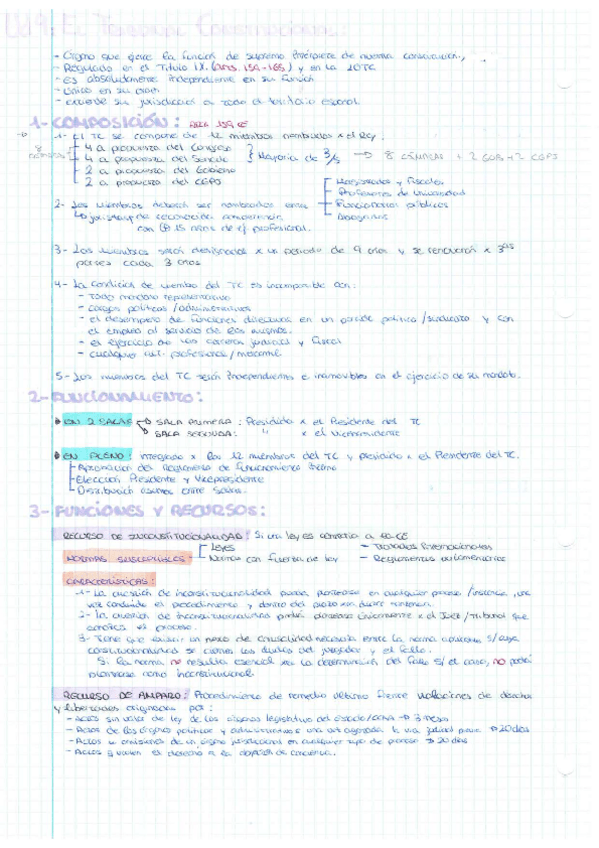 El Tribunal Constitucional:
- Órgano que ejerce la función de supremo intérprete de norma constitucional,
- Regulado en el Título IX (arts. 159-165) y en la LOTC
- es absolutamente independiente en su función
- único en su orden
- extiende su jurisdicción a todo el territorio español
1- COMPOSICIÓN: Art. 159 CE
1- El TC se compone de 12 miembros nombrados x el Rey:
4 a propuesta del Congreso
4 a propuesta del Senado } Mayoría de 3/5 → 8 CÁMARAS + 2 GOB + 2 CGPJ
2 a propuesta del Gobierno
2 a propuesta del CGPJ
2- Los miembros deberán ser nombrados entre
Magistrados y Fiscales
Profesores de Universidad
Funcionarios públicos
Abogados
↳ juristas de reconocida competencia
con 15 años de ej. profesional.
3- Los miembros serán designados x un periodo de 9 años y se renovarán x 3as
partes cada 3 años
4- La condición de miembro del TC es incompatible con:
- Todo mandato representativo
- cargos políticos/administrativos
- el desempeño de funciones directivas en un partido político/sindicato y con
el empleo al servicio de los mismos.
- el ejercicio de las carreras judicial y fiscal
- cualquier act. profesional/mercantil
5- Los miembros del TC serán independientes e inamovibles en el ejercicio de su mandato.
2- FUNCIONAMIENTO:
EN 2 SALAS → SALA PRIMERA: Presidida x el Presidente del TC
→ SALA SEGUNDA: " x el Vicepresidente
EN PLENO: integrado x los 12 miembros del TC y presidido x el Presidente del TC.
- Aprobación del Reglamento de Funcionamiento Interno
- Elección Presidente y Vicepresidente
- Distribución asuntos entre Salas.
3- FUNCIONES Y RECURSOS:
RECURSO DE INCONSTITUCIONALIDAD: Si una ley es contraria a la CE
NORMAS SUSCEPTIBLES - Leyes - Tratados Internacionales
- Normas con fuerza de ley - Reglamentos parlamentarios
CARACTERÍSTICAS:
1- La cuestión de inconstitucionalidad puede plantearse en cualquier proceso/instancia, una
vez concluido el procedimiento y dentro del plazo para dictar sentencia.
2- La cuestión de inconstitucionalidad podrá plantearse únicamente x el Juez/Tribunal que
conozca el proceso.
3- Tiene que existir un nexo de causalidad necesario entre la norma s/ cuya
constitucionalidad se ciernen las dudas del juzgador y el fallo.
Si la norma no resulta esencial xa la determinación del fallo s/ el caso, no podrá
plantearse como inconstitucional.
RECURSO DE AMPARO: Procedimiento de remedio último frente violaciones de derechos
y libertades originadas por:
- Actos sin valor de ley de los órganos legislativos del estado/CCAA → 3 meses
- Actos de los órganos políticos y administrativos una vez agotada la vía judicial previa → 20 días
- Actos u omisiones de un órgano jurisdiccional en cualquier tipo de proceso → 30 días
- Actos q violen el derecho a la objeción de conciencia.